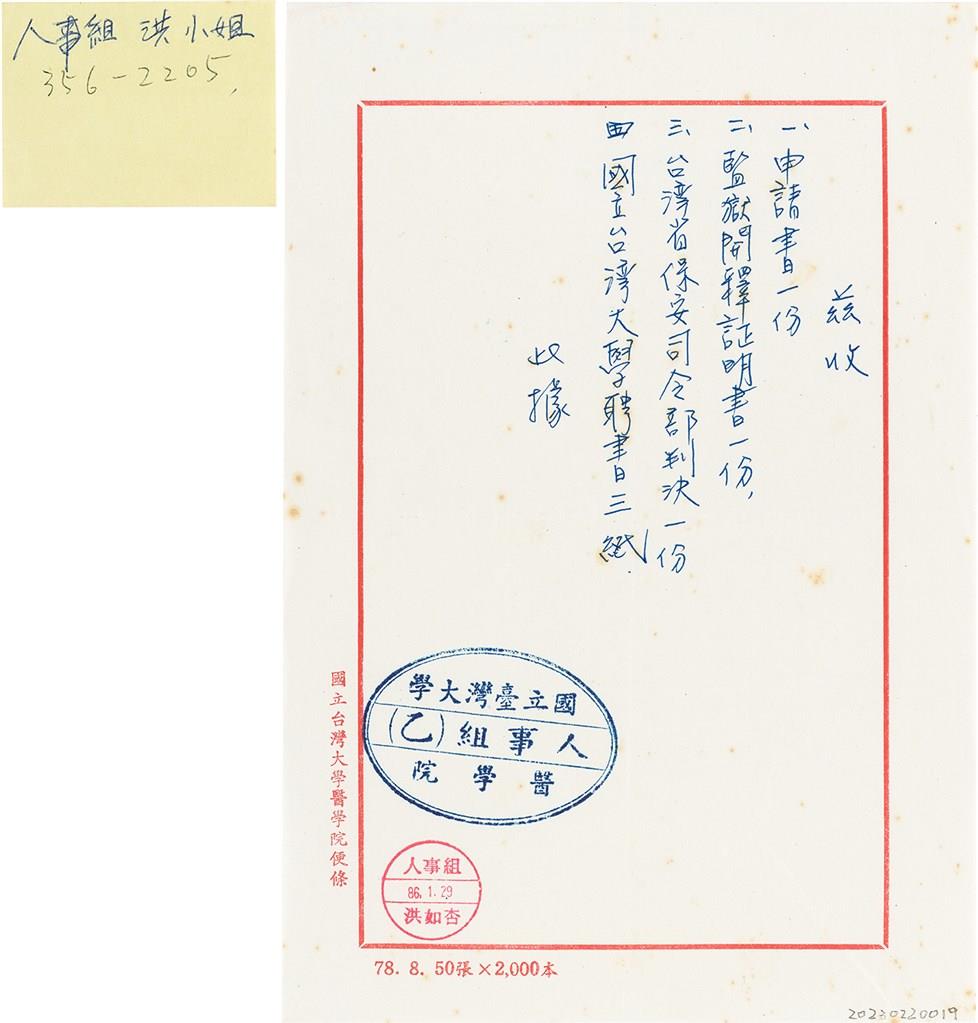 人事組 洪小姐
356-2205,
茲收
一、申請書一份
二、監獄開釋証明書一份,
三、台湾省保安司令部判決一份
四、國立台湾大學聘書三紙.
此據
國立臺灣大學
人事組(乙)
醫學院
人事組
86.1.29
洪如杏
國立台灣大學醫學院便條
78. 8. 50張×2,000本
20230220019